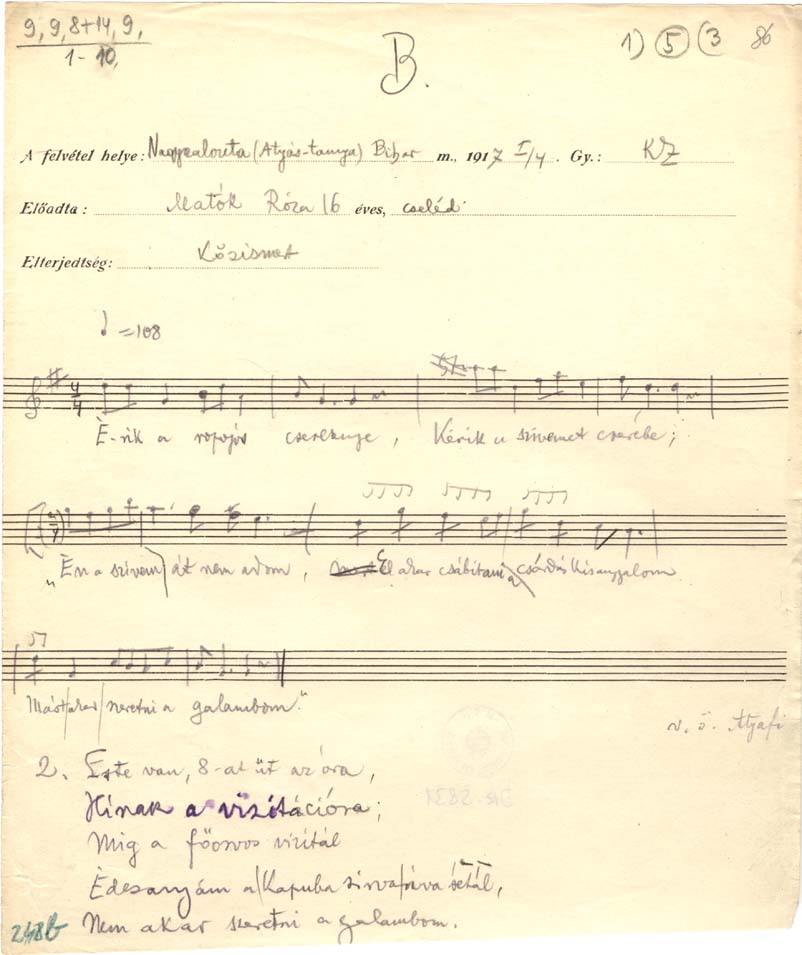 9, 9, 8+14, 9,
1-10,
B.
1) 5 (3 86
A felvétel helye: Nagyszalonta (Atyás-tanya) Bihar m., 1917 I/4. Gy.: KZ
Előadta: Matók Róza 16 éves, cseléd
Elterjedtség: Közismert
=108
È-rik a ropogós cseresznye, Kérik a szivemet cserébe;
"Èn a szivem át nem adom, El akar csábitani a csárdás kisangyalom
Mást akar szeretni a galambom."
v. ö. Atyafi
2. Este van, 8-at üt az óra,
Hínak a vizitációra;
Mig a főorvos vizitál
Èdesanyám a kapuba sirva sétál,
Nem akar szeretni a galambom.
248b